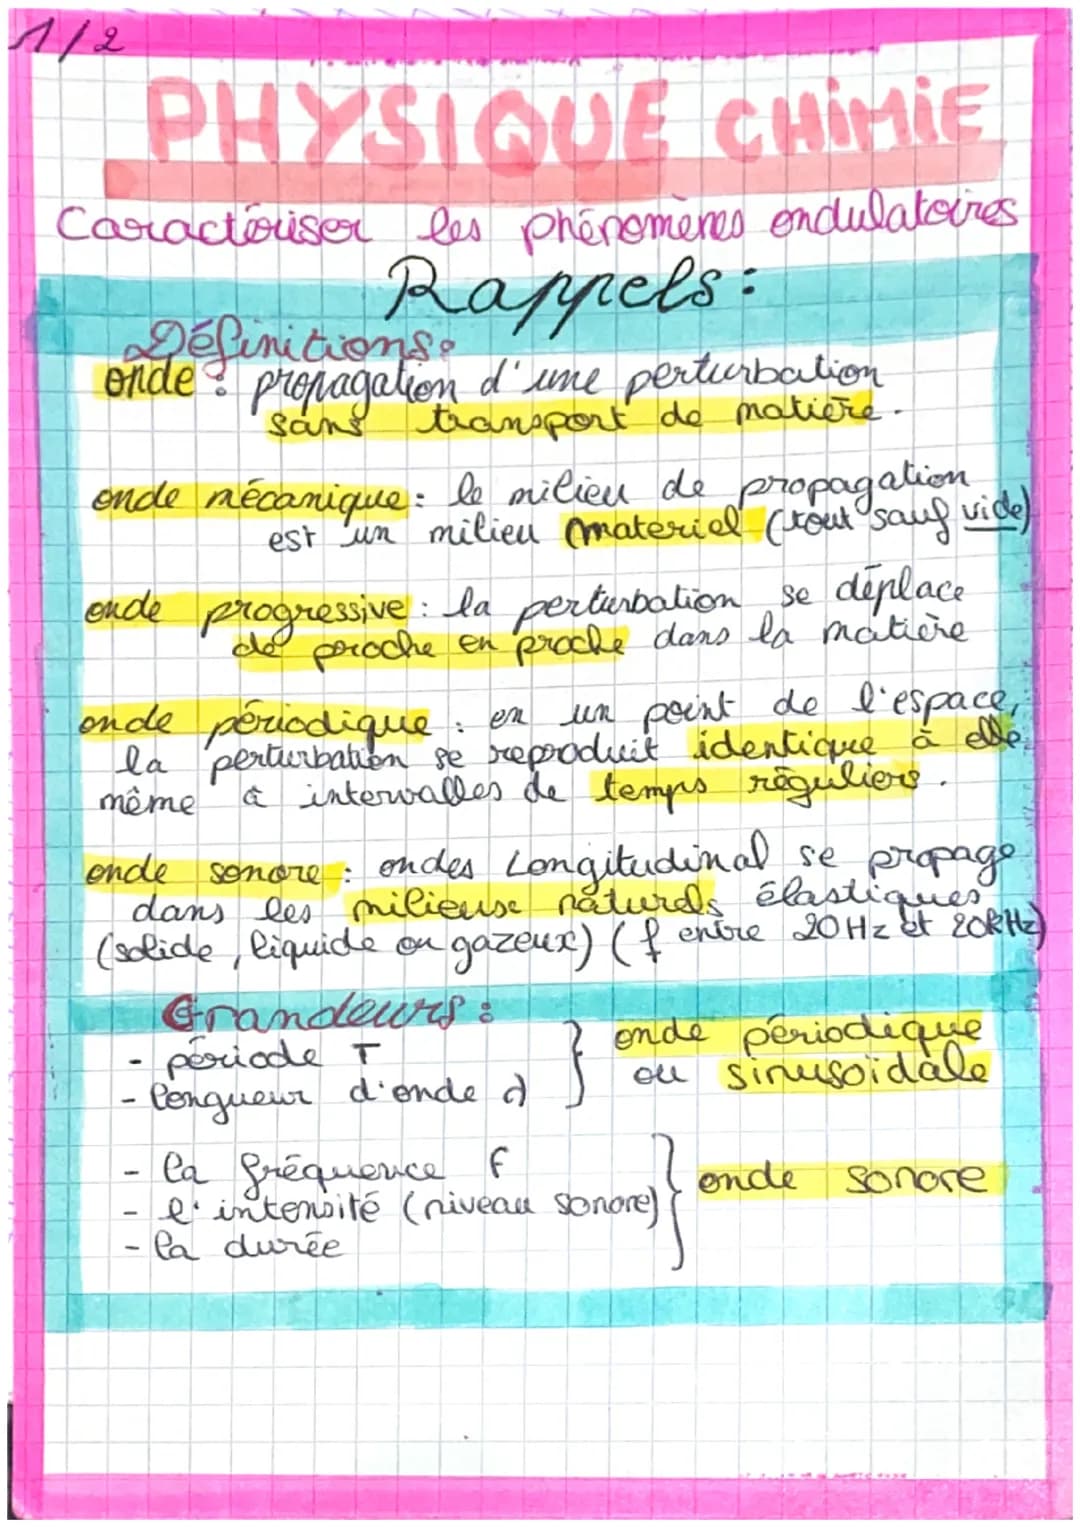 1/2
PHYSIQUE CHIMIE
Caractériser les phénomènes ondulatoires
Rappels:
Définitions:
onde : propagation d'une perturbation
sans transport de matière.
onde mécanique : le milieu de propagation
est un milieu matériel (tout sauf vide)
onde progressive : la perturbation se déplace
de proche en proche dans la matière
onde périodique : en un point de l'espace,
la perturbation se reproduit identique à elle
même à intervalles de temps réguliers.
onde sonore : ondes Longitudinal se propage
dans les milieux naturels élastiques
(solide, liquide ou gazeux) (f entre 20 Hz et 20kHz)
Grandeurs :
- période T
- longueur d'onde λ
} onde périodique
ou sinusoïdale
- la fréquence f
- l'intensité (niveau sonore)
- la durée
} onde sonore